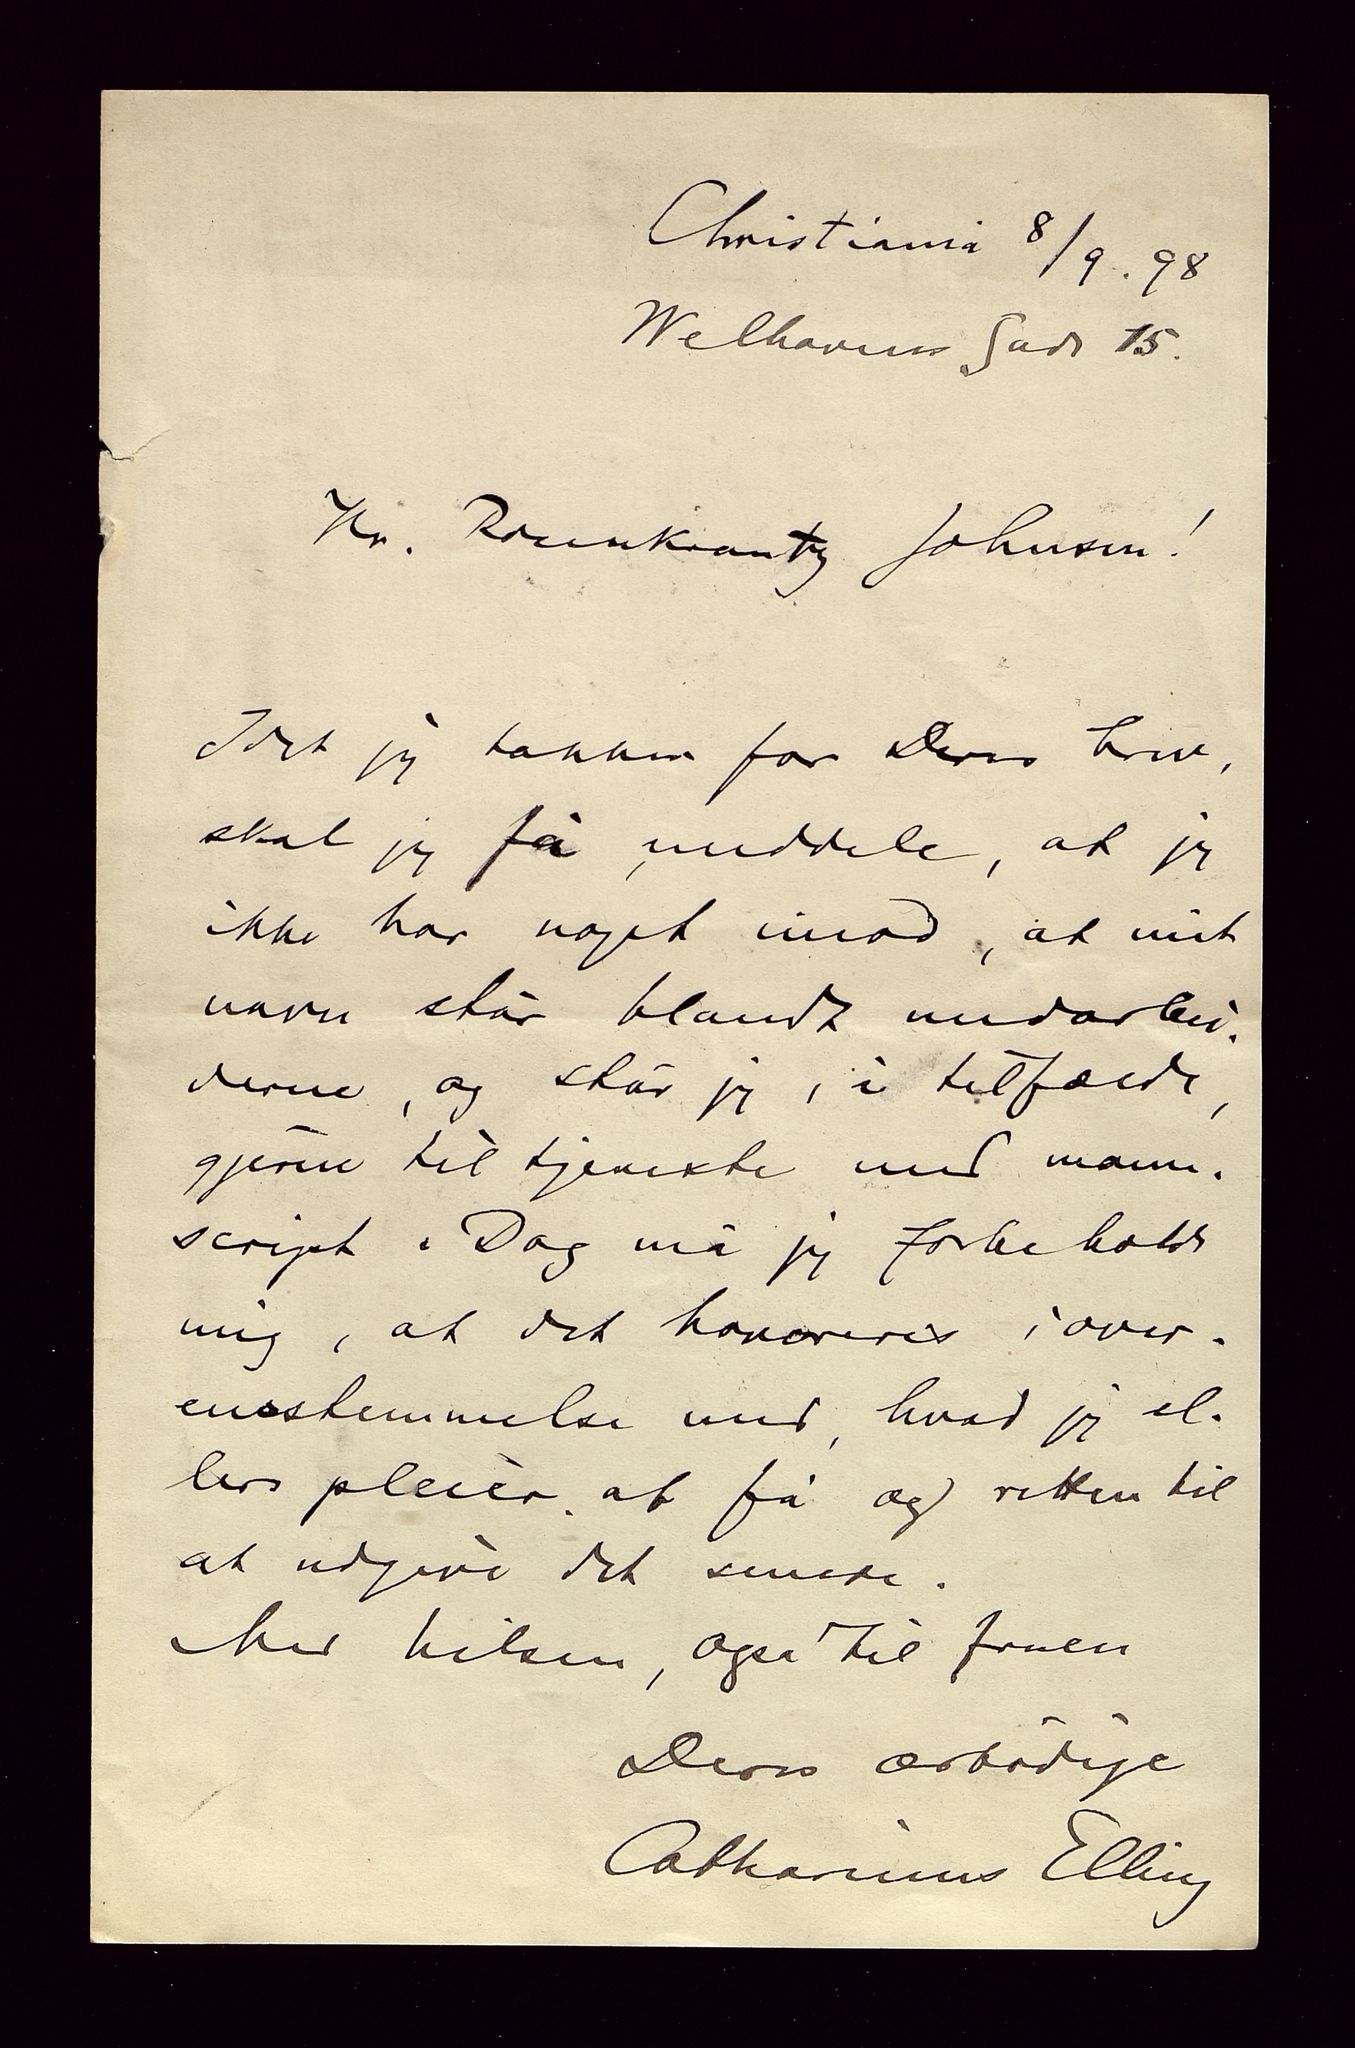 Christiania 8/9. 98
Welhavens Gade 15.
Hr. Rosenkrantz Johnsen!
Idet jeg takker for Deres brev,
skal jeg få meddele, at jeg
ikke har noget imod, at mit
navn står blandt medarbei-
derne, og står jeg, i tilfælde,
gjerne til tjeneste med manu-
script. Dog må jeg forbeholde
mig, at det honoreres i over-
ensstemmelse med, hvad jeg el-
lers pleier at få og retten til
at udgive det senere.
Med hilsen, også til fruen
Deres ærbödige
Catharinus Elling